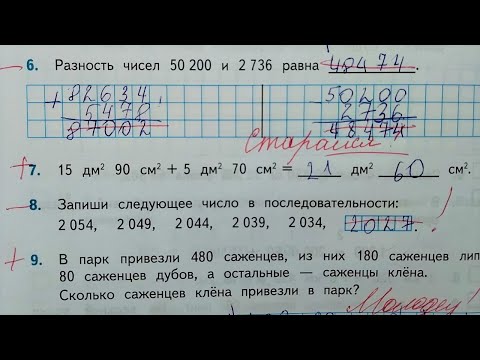 6. Разность чисел 50 200 и 2 736 равна 48474.
+ 82634 50200
5478 2736
87002 48474
Старайся!
+ 7. 15 дм² 90 см² + 5 дм² 70 см² = 21 дм² 60 см².
8. Запиши следующее число в последовательности:
2 054, 2 049, 2 044, 2 039, 2 034, 2027.
+ 9. В парк привезли 480 саженцев, из них 180 саженцев лип
80 саженцев дубов, а остальные — саженцы клёна.
Сколько саженцев клёна привезли в парк?
Молодец!